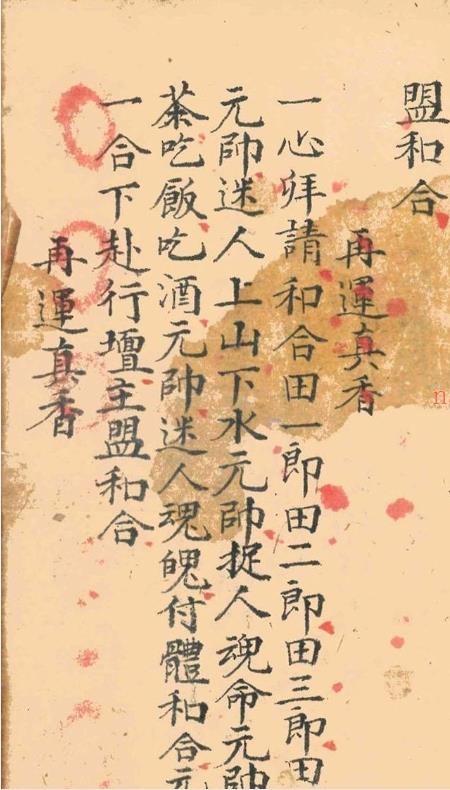 盟和合
再運真香
一心拜請和合田一郎田二郎田三郎田
元帥迷人上山下水元帥捉人魂命元帥
茶吃飯吃酒元帥迷人魂魄付體和合元
一合下赴行壇主盟和合
再運真香
n